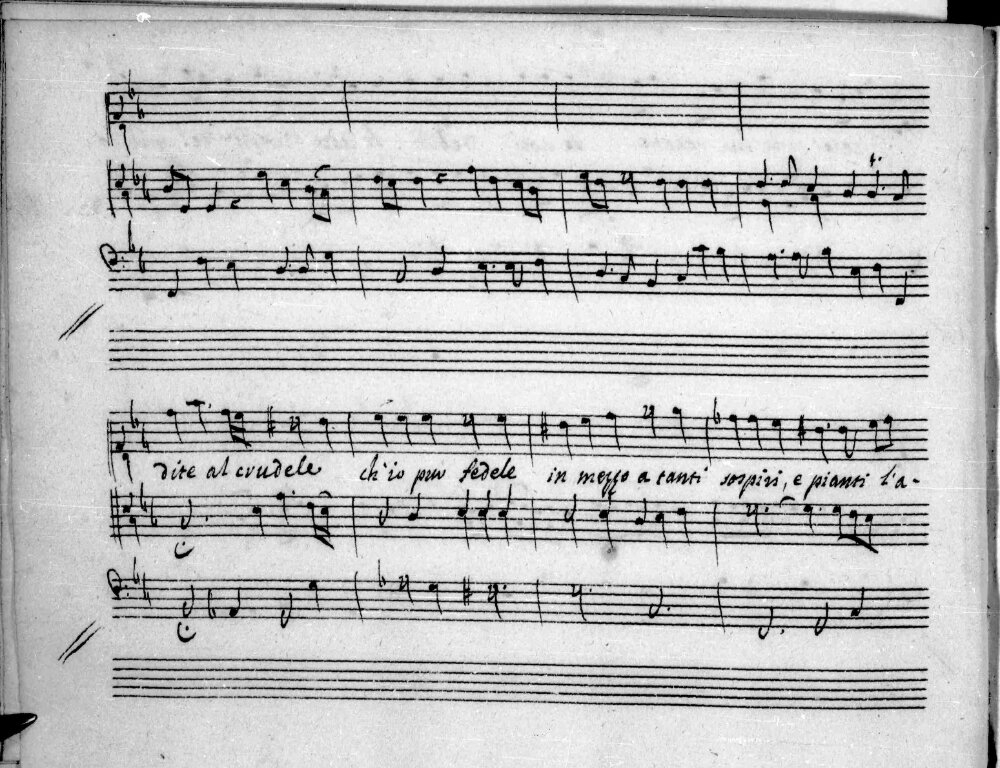 dite al crudele ch'io pur fedele in mezzo a tanti sospiri, e pianti l'a-